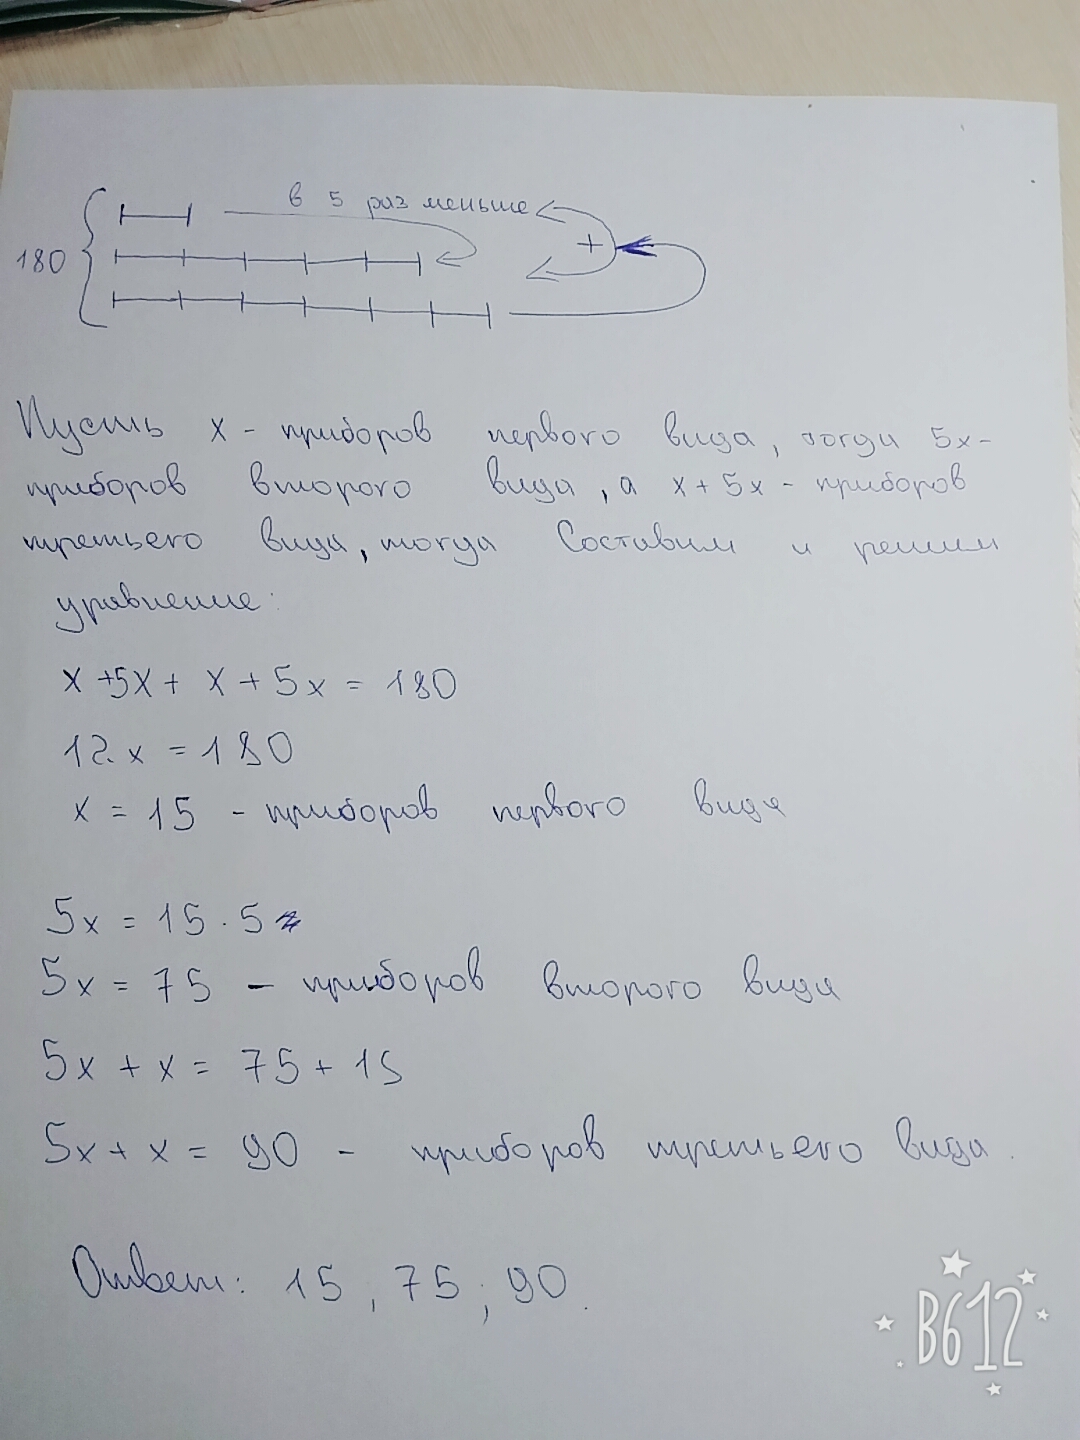 в 5 раз меньше
+
180
Пусть x - приборов первого вида, тогда 5x -
приборов второго вида, а x + 5x - приборов
третьего вида, тогда Составим и решим
уравнение:
x + 5x + x + 5x = 180
12x = 180
x = 15 - приборов первого вида
5x = 15 · 5
5x = 75 - приборов второго вида
5x + x = 75 + 15
5x + x = 90 - приборов третьего вида.
Ответ: 15, 75; 90.
B612